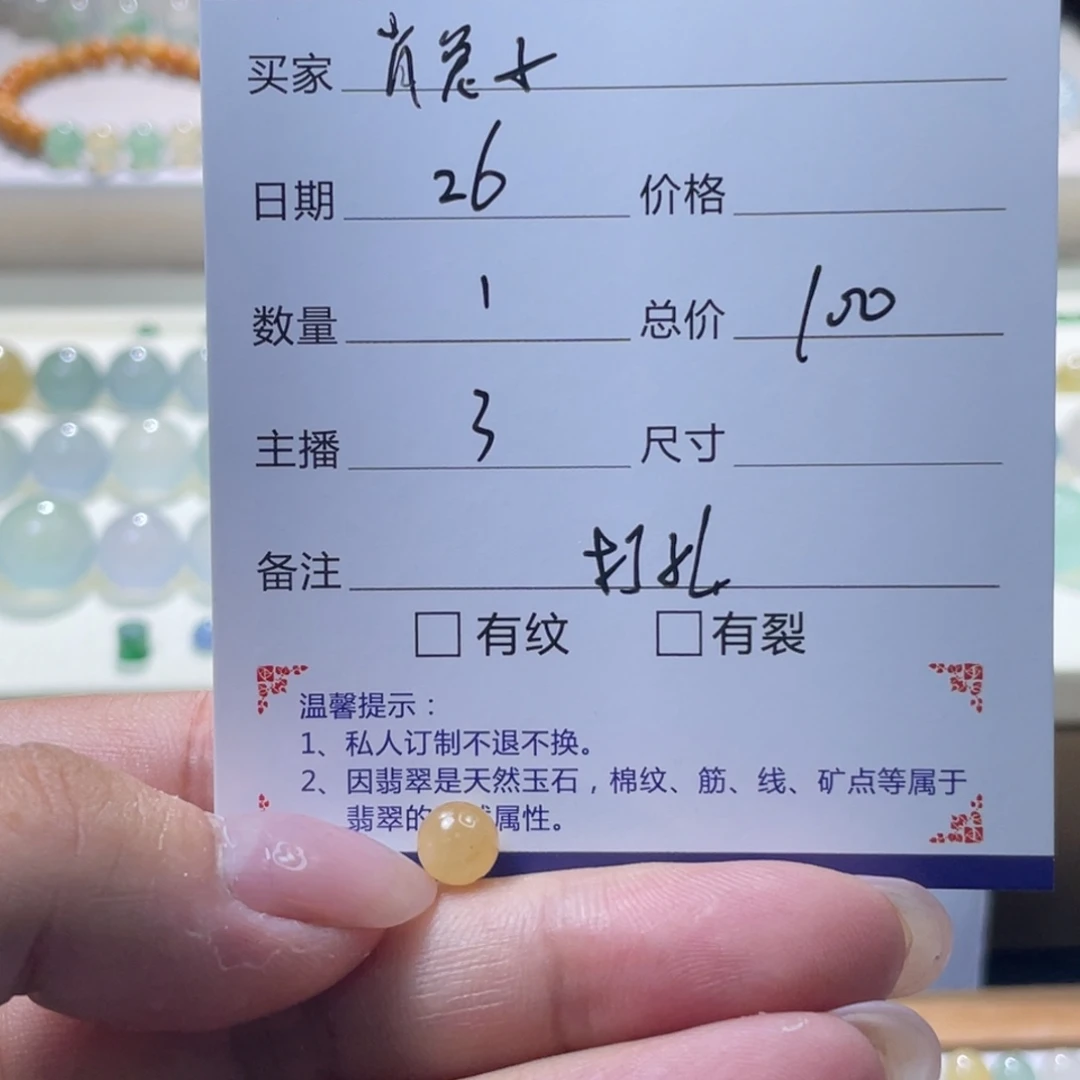 买家 肖总
日期 26 价格
数量 1 总价 100
主播 3 尺寸
备注 打孔
有纹 有裂
温馨提示：
1、私人订制不退不换。
2、因翡翠是天然玉石，棉纹、筋、线、矿点等属于
翡翠的 属性。